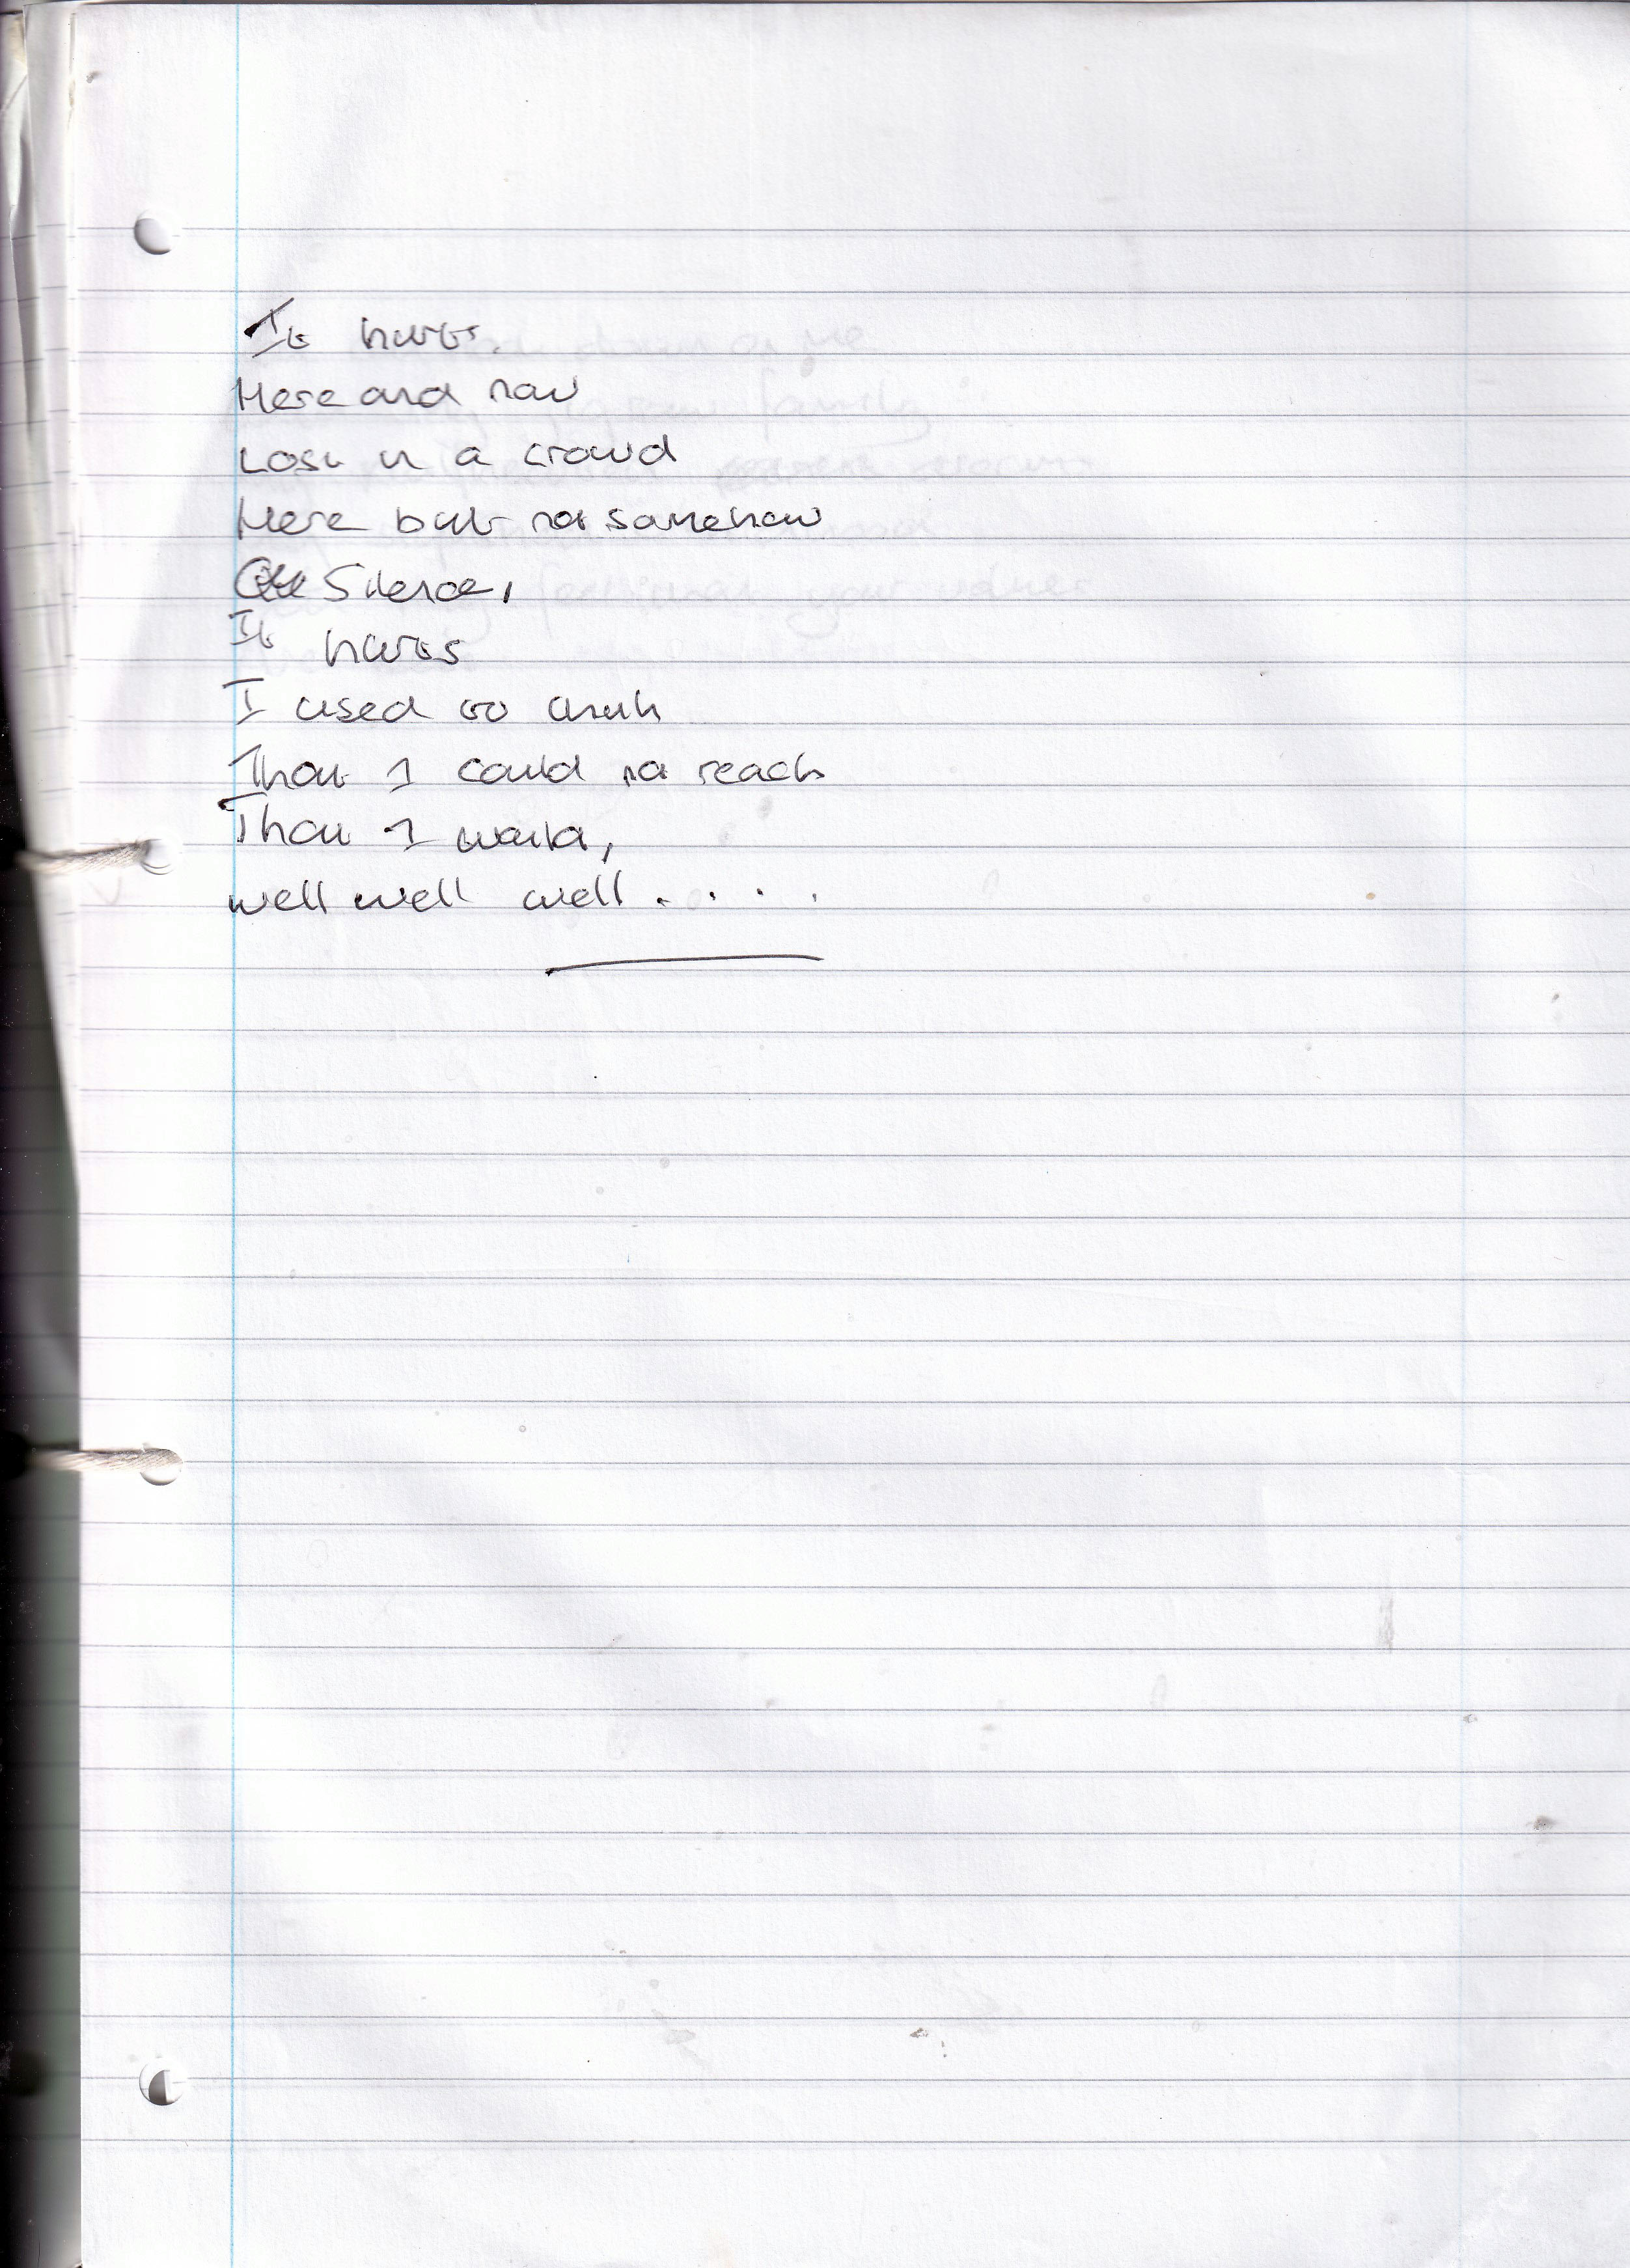 It hurts.
Here and now
Lost in a crowd
Here but not somehow
Silence,
It hurts
I used to think
That I could not reach
That I would,
well well well . . . .